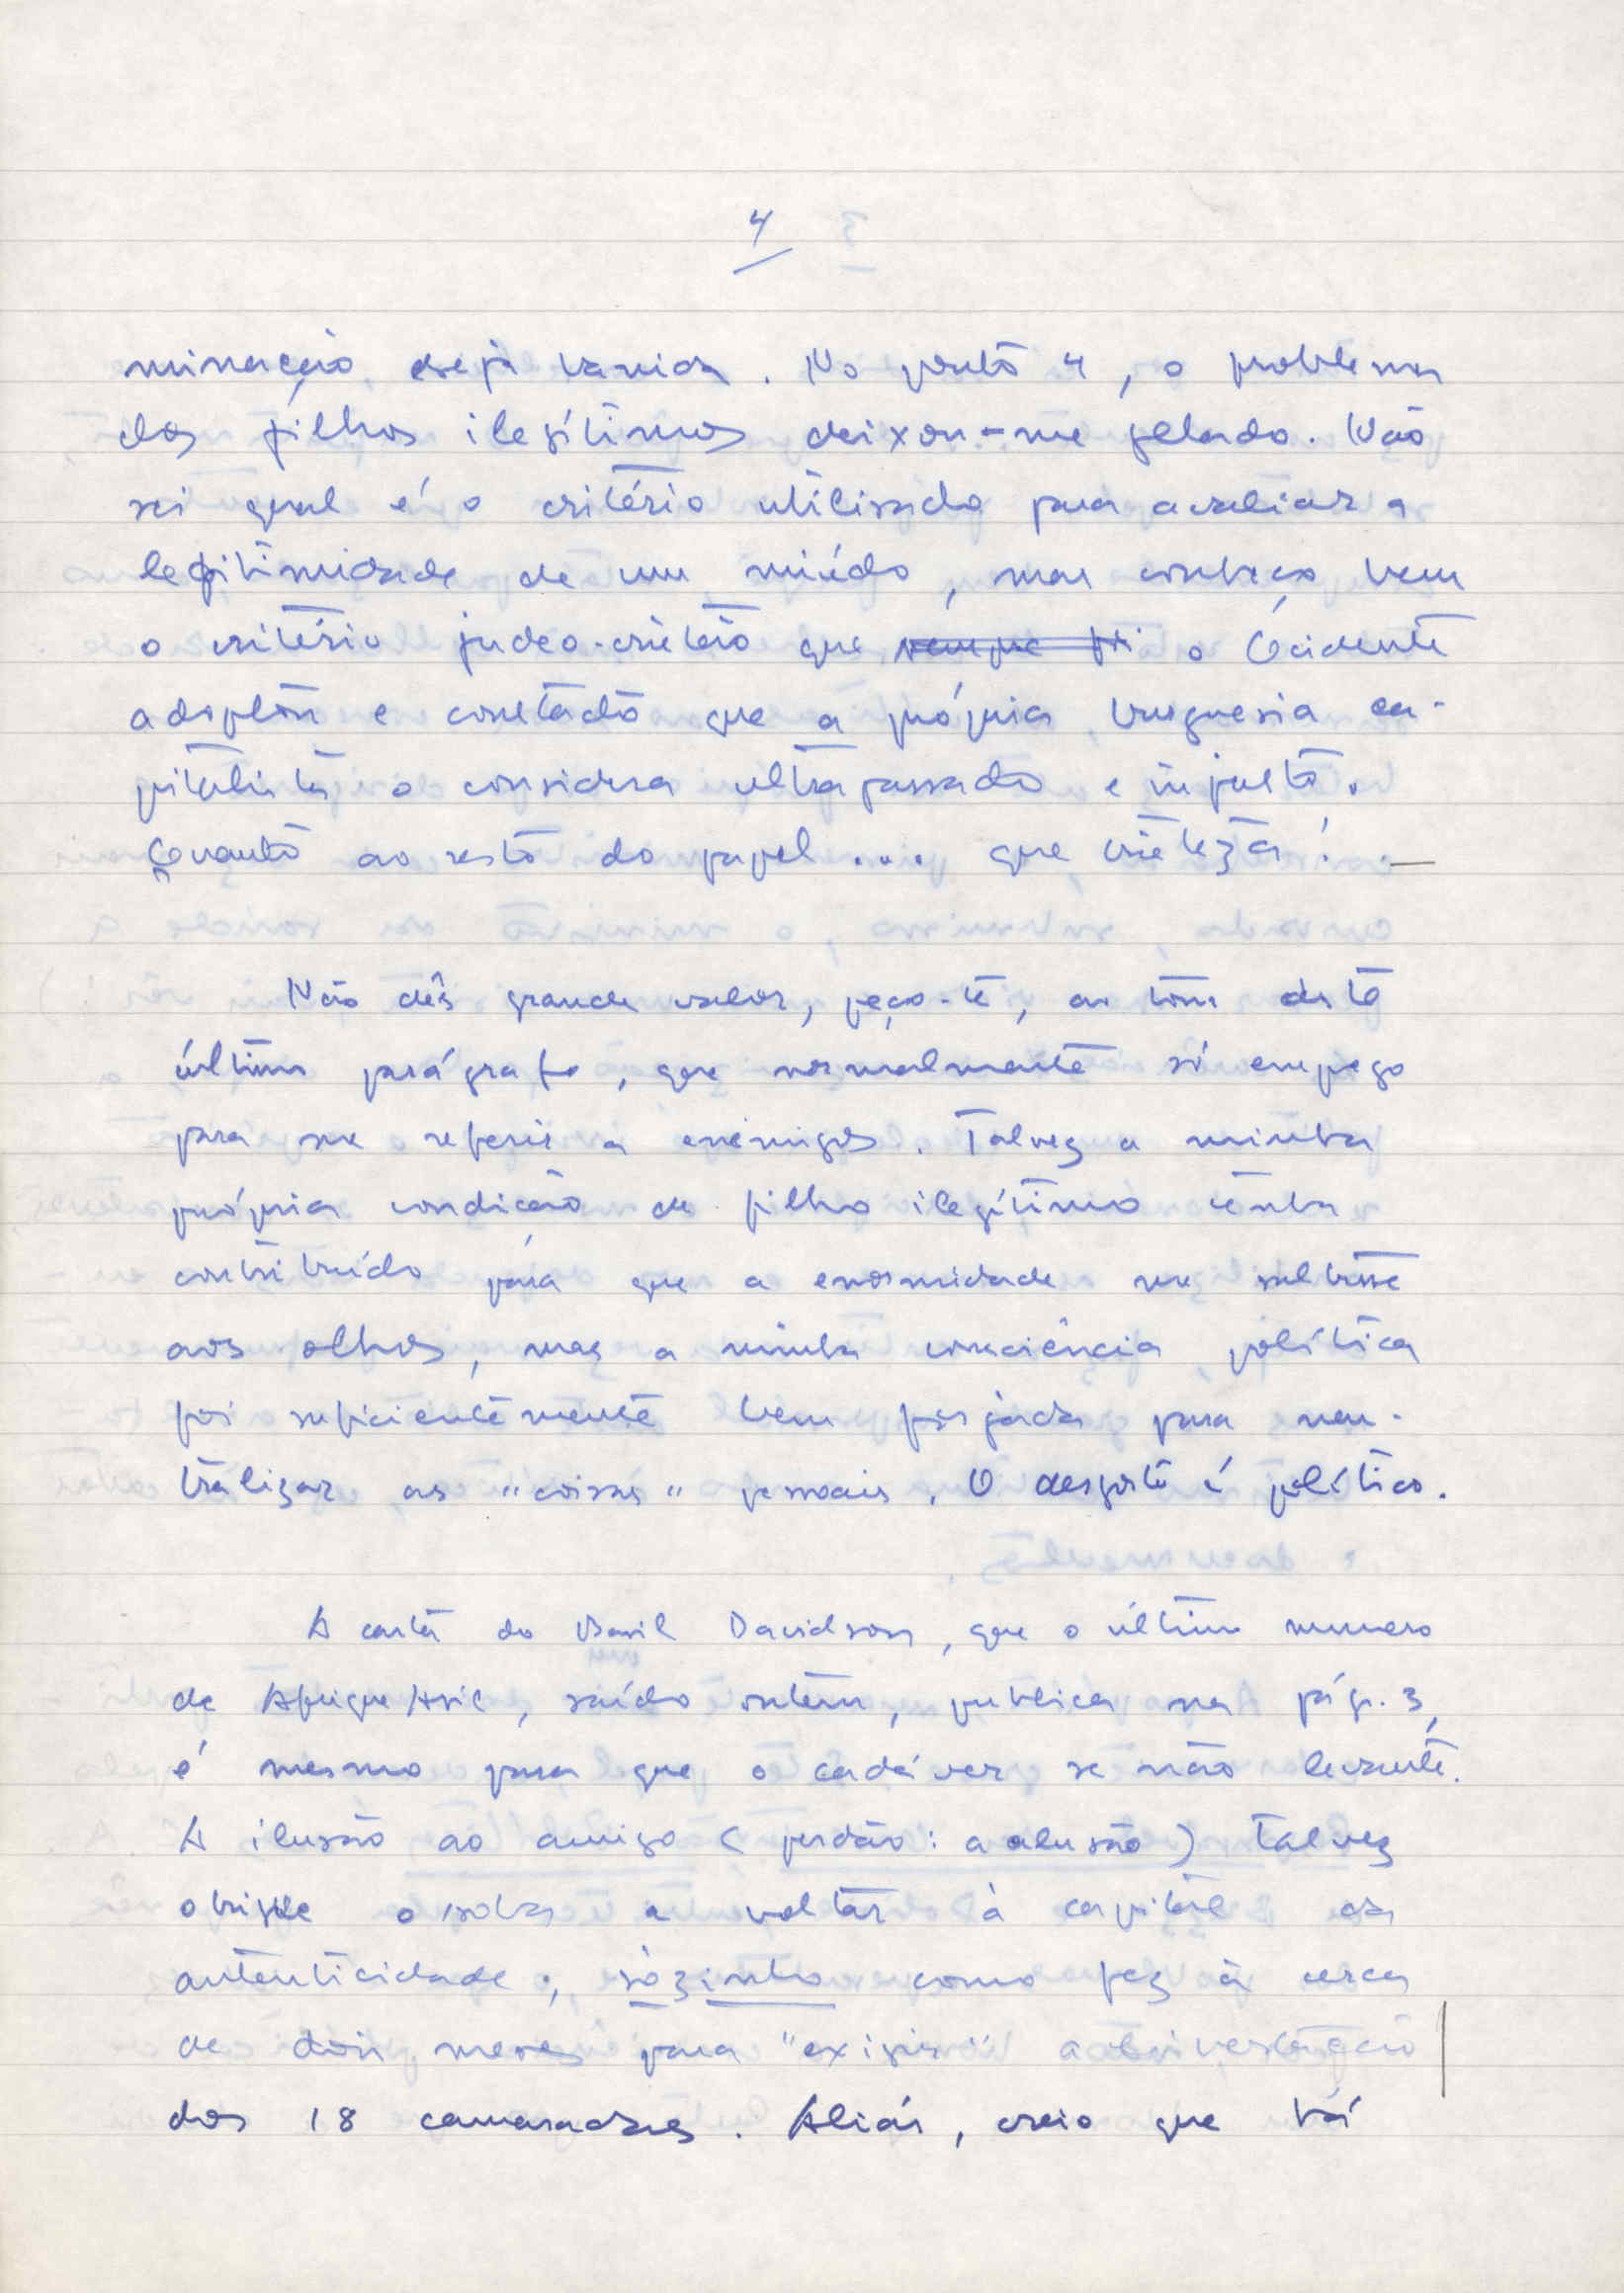 4
minação seja banida. No ponto 4, o problema
dos filhos ilegítimos deixou-me gelado. Não
sei qual é o critério utilisado para avaliar a
legitimidade de um miúdo, mas conheço bem
o critério judeo-cristão que sempre foi o Ocidente
adoptou e constato que a própria burguesia ca-
pitalista o considera ultrapassado e injusto.
Quanto ao resto do papel ... que tristeza! —
Não dês grande valor, peço-te, ao tom deste
último parágrafo, que normalmente só emprego
para me referir a inimigos. Talvez a minha
própria condição de filho ilegítimo tenha
contribuído para que a enormidade me saltasse
aos olhos, mas a minha consciência política
foi suficientemente bem forjada para neu-
tralizar as "coisas" pessoais. O desgosto é político.
A carta do Basil Davidson, que o último numero
de Afrique Asie, saído ontem, publica na pág. 3,
é mesmo para que o cadáver se não levante.
A ilusão ao amigo (perdão: a alusão) talvez
obrigue o soba a voltar à capital da
autenticidade; sòzinho como fez à cerca
de dois meses para "exigir" a
dos 18 camaradas. Aliás, creio que vai